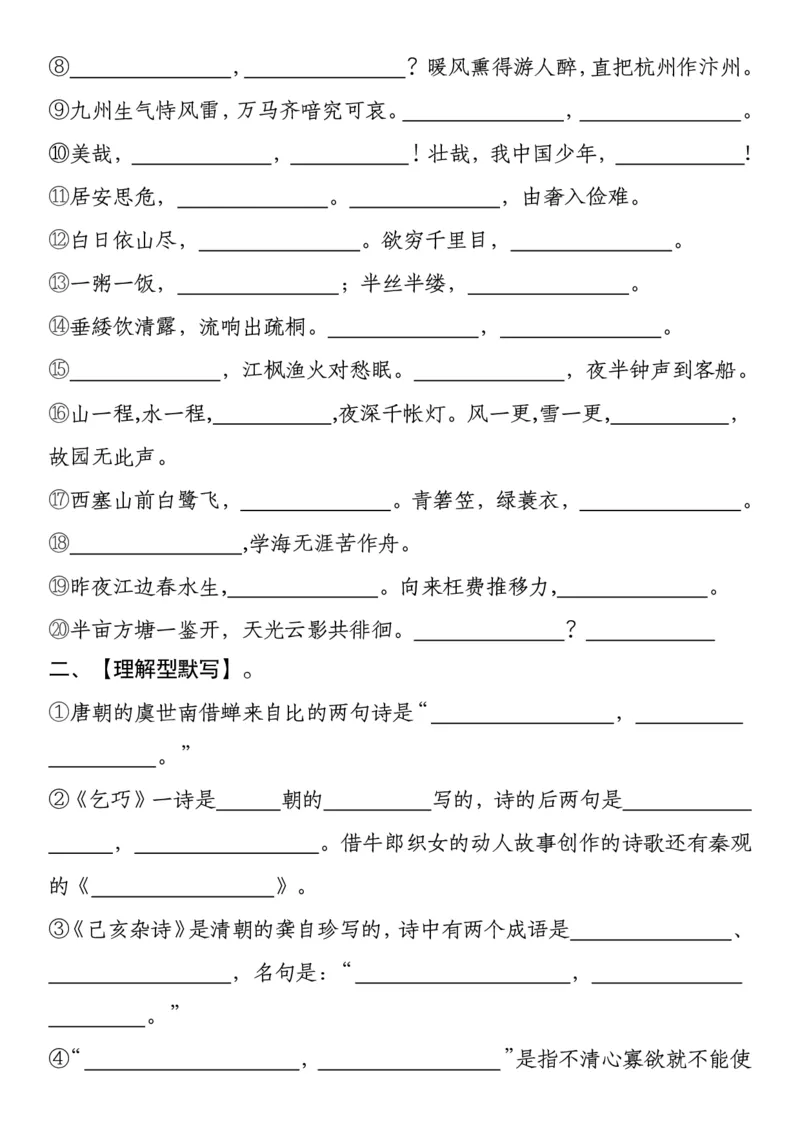 ⑧_______________，_______________？暖风熏得游人醉，直把杭州作汴州。
⑨九州生气恃风雷，万马齐喑究可哀。_______________，_______________。
⑩美哉，_____________，___________！壮哉，我中国少年，____________！
⑪居安思危，______________。______________，由奢入俭难。
⑫白日依山尽，_______________。欲穷千里目，_______________。
⑬一粥一饭，_______________；半丝半缕，_______________。
⑭垂緌饮清露，流响出疏桐。______________，_______________。
⑮______________，江枫渔火对愁眠。______________，夜半钟声到客船。
⑯山一程,水一程,___________,夜深千帐灯。风一更,雪一更,___________，
故园无此声。
⑰西塞山前白鹭飞，______________。青箬笠，绿蓑衣，_______________。
⑱________________,学海无涯苦作舟。
⑲昨夜江边春水生,______________。向来枉费推移力,______________。
⑳半亩方塘一鉴开，天光云影共徘徊。______________？____________
二、【理解型默写】。
①唐朝的虞世南借蝉来自比的两句诗是“_________________，__________
__________。”
②《乞巧》一诗是______朝的__________写的，诗的后两句是____________
______，_________________。借牛郎织女的动人故事创作的诗歌还有秦观
的《_________________》。
③《己亥杂诗》是清朝的龚自珍写的，诗中有两个成语是_______________、
_________________，名句是：“____________________，______________
_________。”
④“____________________，_________________”是指不清心寡欲就不能使